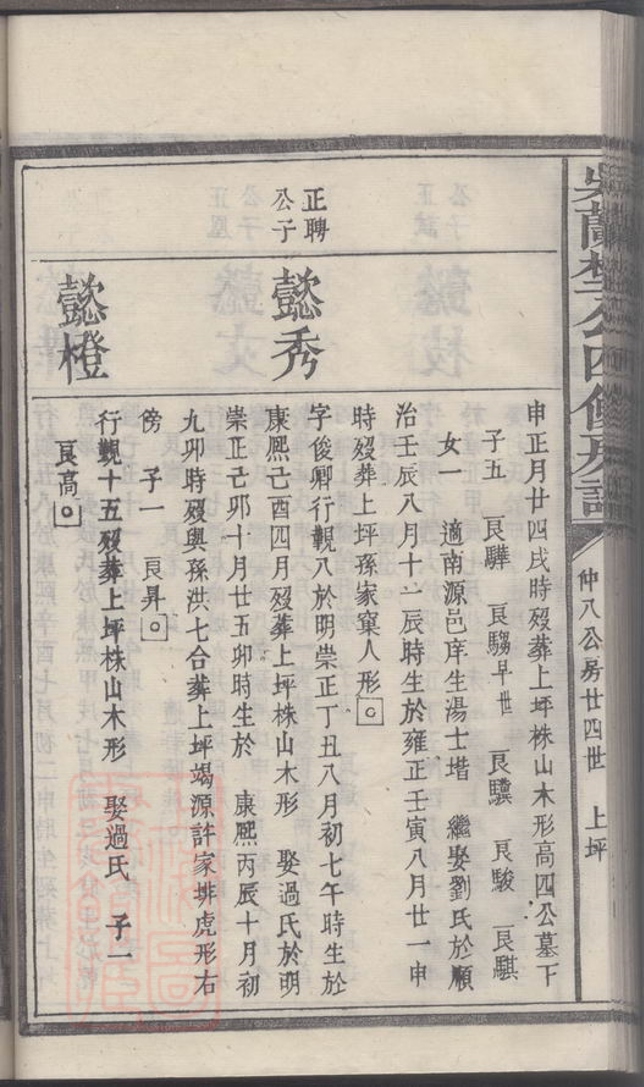 吳蘭埜公四修房譜
仲八公房廿四世　上坪
申正月廿四戌時歿葬上坪株山木形高四公墓下
子五　良驊　良騶早世　良驥　良駿　良騏
女一　適南源邑庠生湯士堦　繼娶劉氏於順
治壬辰八月十一辰時生於雍正壬寅八月廿一申
時歿葬上坪孫家窠人形
正聘
公子
懿秀
字俊卿行觀八於明崇正丁丑八月初七午時生於
康熙己酉四月歿葬上坪株山木形　娶過氏於明
崇正己卯十月廿五卯時生於　康熙丙辰十月初
九卯時歿與孫洪七合葬上坪竭源許家排虎形右
傍　子一　良昇
懿橙
行觀十五歿葬上坪株山木形　娶過氏　子一
良高